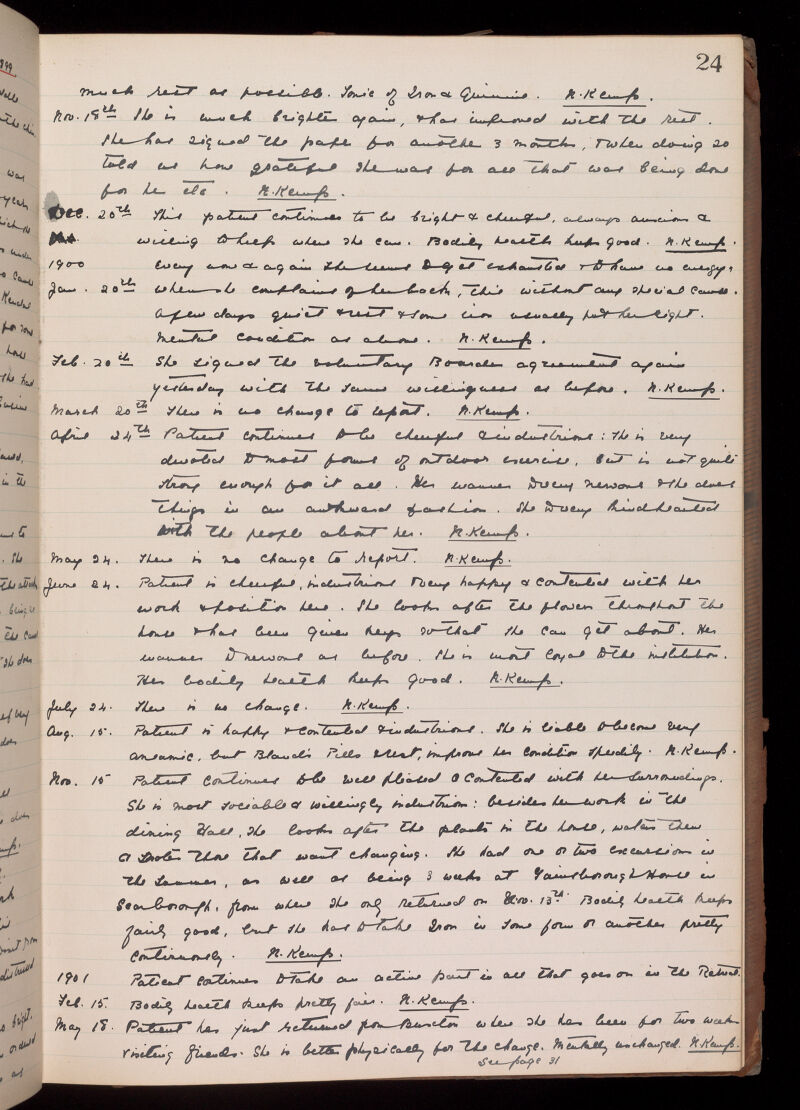 24
much rest as possible. Tonic of Iron & Quinine. N. Kemp.
Nov. 18th She is much brighter again, & has improved with the rest.
She has signed the paper for another 3 months, & when doing so
told us how grateful she was for all that was being done
for her etc. N. Kemp.
Dec. 20th This patient continues to be bright & cheerful, always anxious &
willing to help where she can. Bodily health keeps good. N. Kemp.
1900 Every now & again she seems to get exhausted & to have no energy,
Jan. 20th when she complains of her back, this without any special cause.
A few days quiet & rest & some iron usually put her right.
Mental condition as above. N. Kemp.
Feb. 20th She signed the voluntary Boarder agreement again
yesterday with the same willingness as before. N. Kemp.
March 20th There is no change to report. N. Kemp.
April 24th Patient continues to be cheerful & industrious: she is very
devoted to most forms of outdoor exercise, but is not quite
strong enough for it all. Her manner is very nervous & she does
things in an awkward fashion. She is very kindhearted
with the people about her. N. Kemp.
May 24. There is no change to report. N. Kemp.
June 24. Patient is cheerful, industrious & very happy & contented with her
work & position here. She looks after the flowers throughout the
house & has been given keys so that she can get about. Her
manner is nervous as before. She is most loyal to the institution.
Her bodily health keeps good. N. Kemp.
July 24. There is no change. N. Kemp.
Aug. 15. Patient is happy & contented & industrious. She is liable to become very
anaemic, but Blaud's Pills & rest, improve her condition speedily. N. Kemp.
Nov. 15 Patient continues to be well pleased & contented with her surroundings.
She is most sociable & willingly industrious: besides her work in the
dining Hall, she looks after the plants in the house, waters them
& those that want changing. She had one or two excursions in
the Summer, as well as being 3 weeks at Gainsborough House in
Scarborough, from where she only returned on Nov. 13th. Bodily health keeps
fairly good, but she has to take Iron in some form or another pretty
continuously. N. Kemp.
1901 Patient continues to take an active part in all that goes on in the Retreat.
Feb. 15. Bodily health keeps pretty fair. N. Kemp.
May 18. Patient has just returned from where she has been for two weeks
visiting friends. She is better physically for the change. Mentally unchanged. N. Kemp.
See page 31